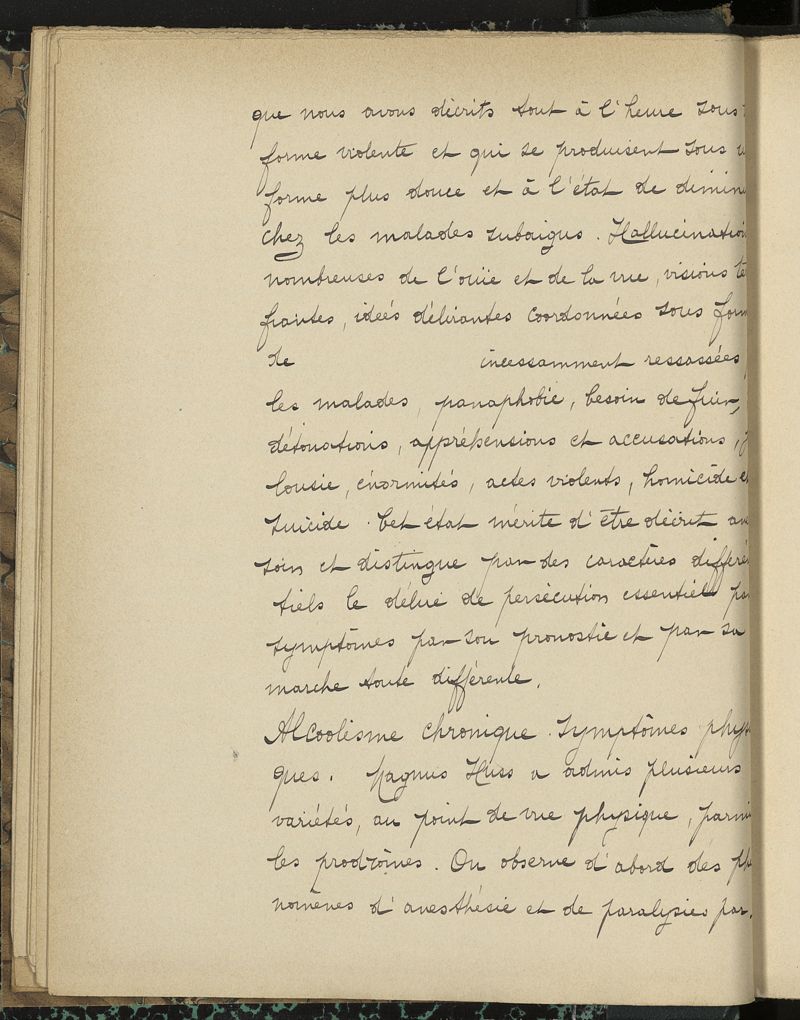 que nous avons décrits tout à l'heure sous
forme violente et qui se produisent sous
forme plus douce et à l'état de
chez les malades subaigus. Hallucination
nombreuses de l'ouïe et de la vue, visions
frantes, ideés délirantes coordonnées sous
de incessamment ressassées
les malades, panaphobie, besoin de fuir,
détonations, appréhensions et accusations,
lousie, énormités, actes violents, homicide
suicide. Cet état mérite d'être décrit
soin et distingue par des caractères
tiels le délire de persécution essentiel
symptômes par son pronostic et par sa
marche toute différente.
Alcoolisme chronique. Symptômes
ques. Magnus Huss a admis plusieurs
variétés, au point de vue physique,
les prodrômes. On observe d'abord des
nomènes d'anesthésie et de paralysies par